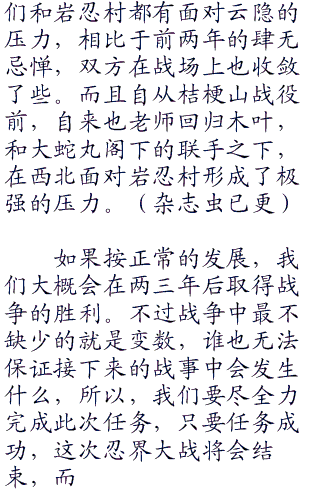 们和岩忍村都有面对云隐的
压力，相比于前两年的肆无
忌惮，双方在战场上也收敛
了些。而且自从桔梗山战役
前，自来也老师回归木叶，
和大蛇丸阁下的联手之下，
在西北面对岩忍村形成了极
强的压力。（杂志虫已更）
如果按正常的发展，我
们大概会在两三年后取得战
争的胜利。不过战争中最不
缺少的就是变数，谁也无法
保证接下来的战事中会发生
什么，所以，我们要尽全力
完成此次任务，只要任务成
功，这次忍界大战将会结
束，而